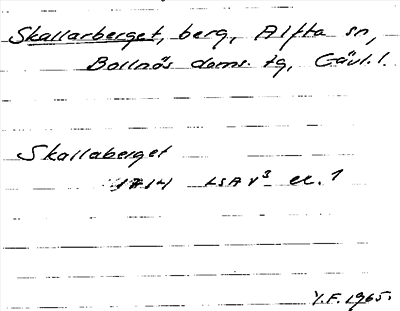 Skallarberget, berg, Alfta sn,
Bollnäs doms. tg, Gävl. l.
Skallaberget
1714 LSA v³ nr. 1
Y.F. 1965.